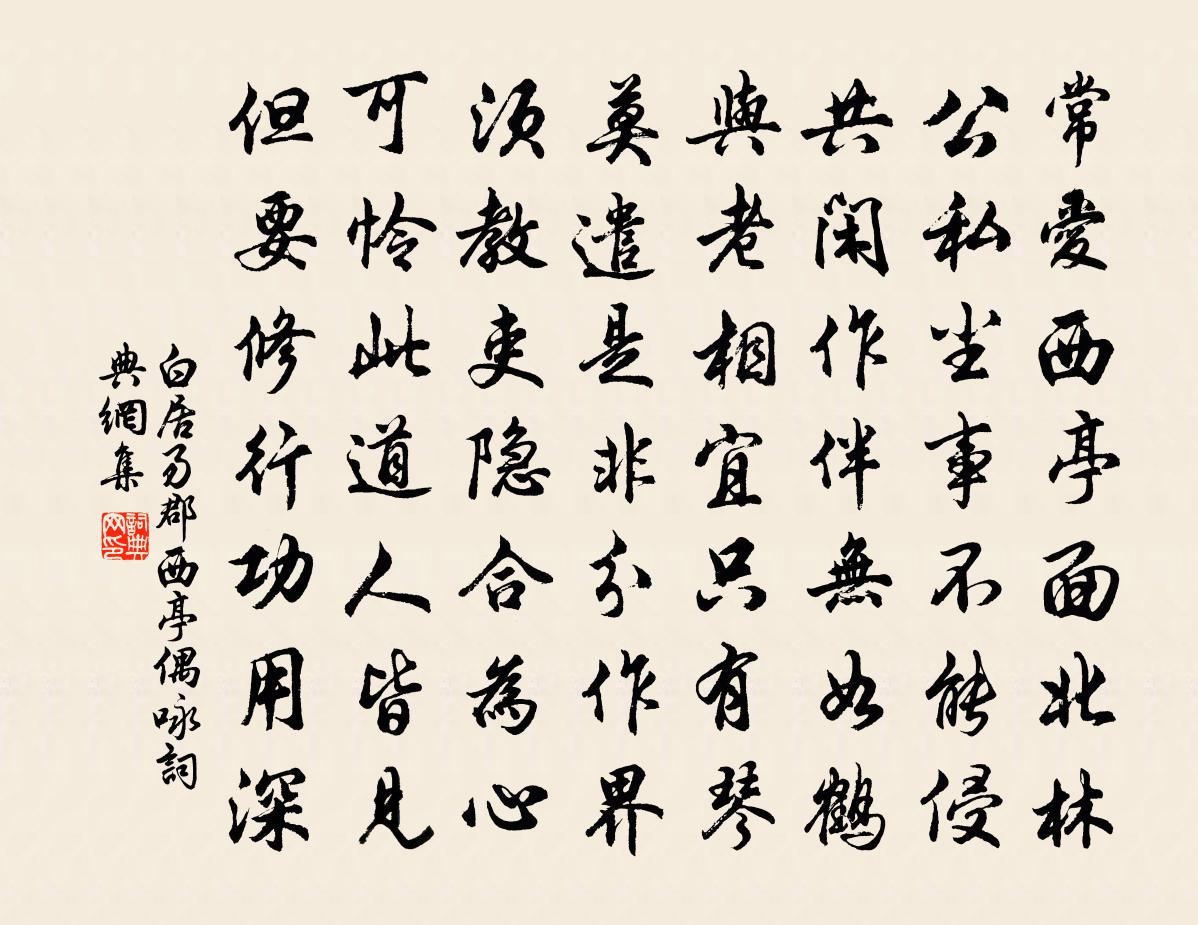 常愛西亭面北林
公私尘事不能侵
共閑作伴無如鶴
與老相宜只有琴
莫遣是非分作界
須教吏隐合為心
可怜此道人皆見
但要修行功用深
白居易郡西亭偶咏詞
典網集
詞典
网印